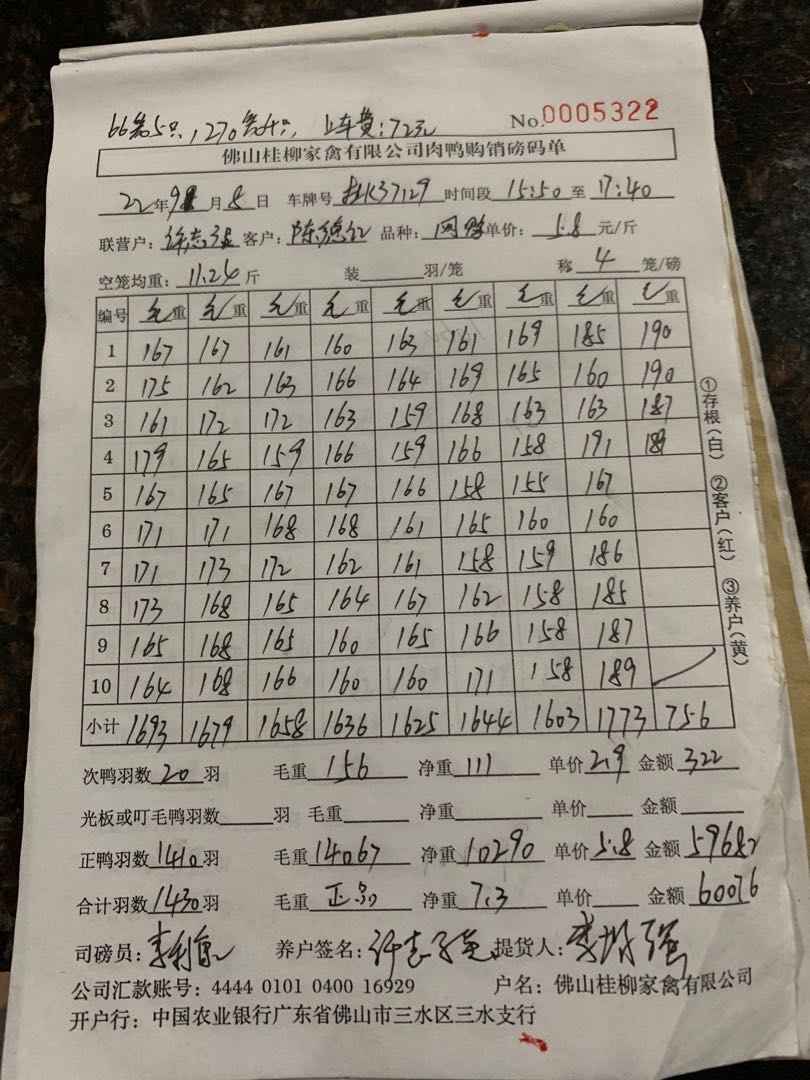 66笼5只,1270笼4只, 上车费:72元 No.0005322
佛山桂柳家禽有限公司肉鸭购销磅码单
22年9月8日 车牌号 K37129 时间段 15:50 至 17:40
联营户: 客户:陈德红 品种: 单价:5.8 元/斤
空笼均重:11.24斤 装 羽/笼 称 4 笼/磅
编号 毛重 毛重 毛重 毛重 毛重 毛重 毛重 毛重 毛重
1 167 167 161 160 163 161 169 185 190
2 175 162 163 166 164 169 165 160 190
3 161 172 172 163 159 168 163 163 187
4 179 165 159 166 159 166 158 191 189
5 167 165 167 167 166 158 155 167
6 171 171 168 168 161 165 160 160
7 171 173 172 162 161 158 159 186
8 173 168 165 164 167 162 158 185
9 165 168 165 160 165 166 158 187
10 164 168 166 160 160 171 158 189
小计 1693 1679 1658 1636 1625 1644 1603 1773 756
次鸭羽数 20 羽 毛重 156 净重 111 单价 2.9 金额 322
光板或叮毛鸭羽数 羽 毛重 净重 单价 金额
正鸭羽数 1410 羽 毛重 14067 净重 10290 单价 5.8 金额 59682
合计羽数 1430 羽 毛重 正品 净重 7.3 单价 金额 60076
司磅员: 养户签名: 提货人:
公司汇款账号:4444 0101 0400 16929 户名:佛山桂柳家禽有限公司
开户行:中国农业银行广东省佛山市三水区三水支行
①存根(白) ②客户(红) ③养户(黄)